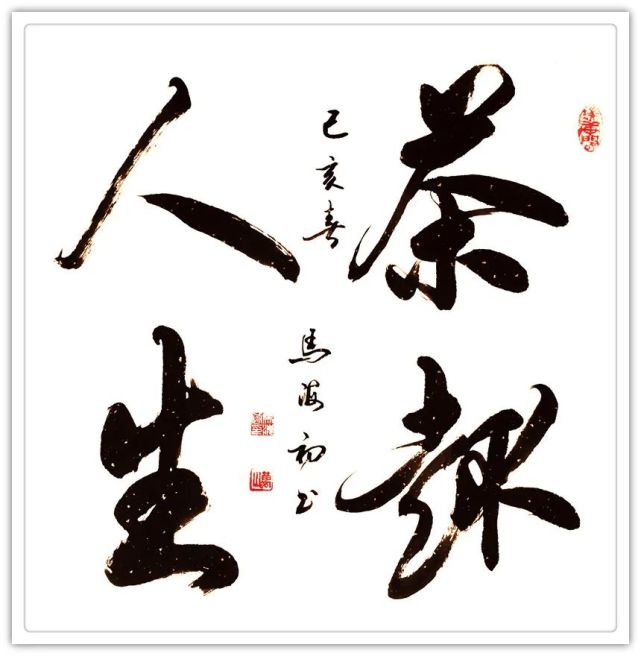 茶趣
人生
己亥春
馬海初书